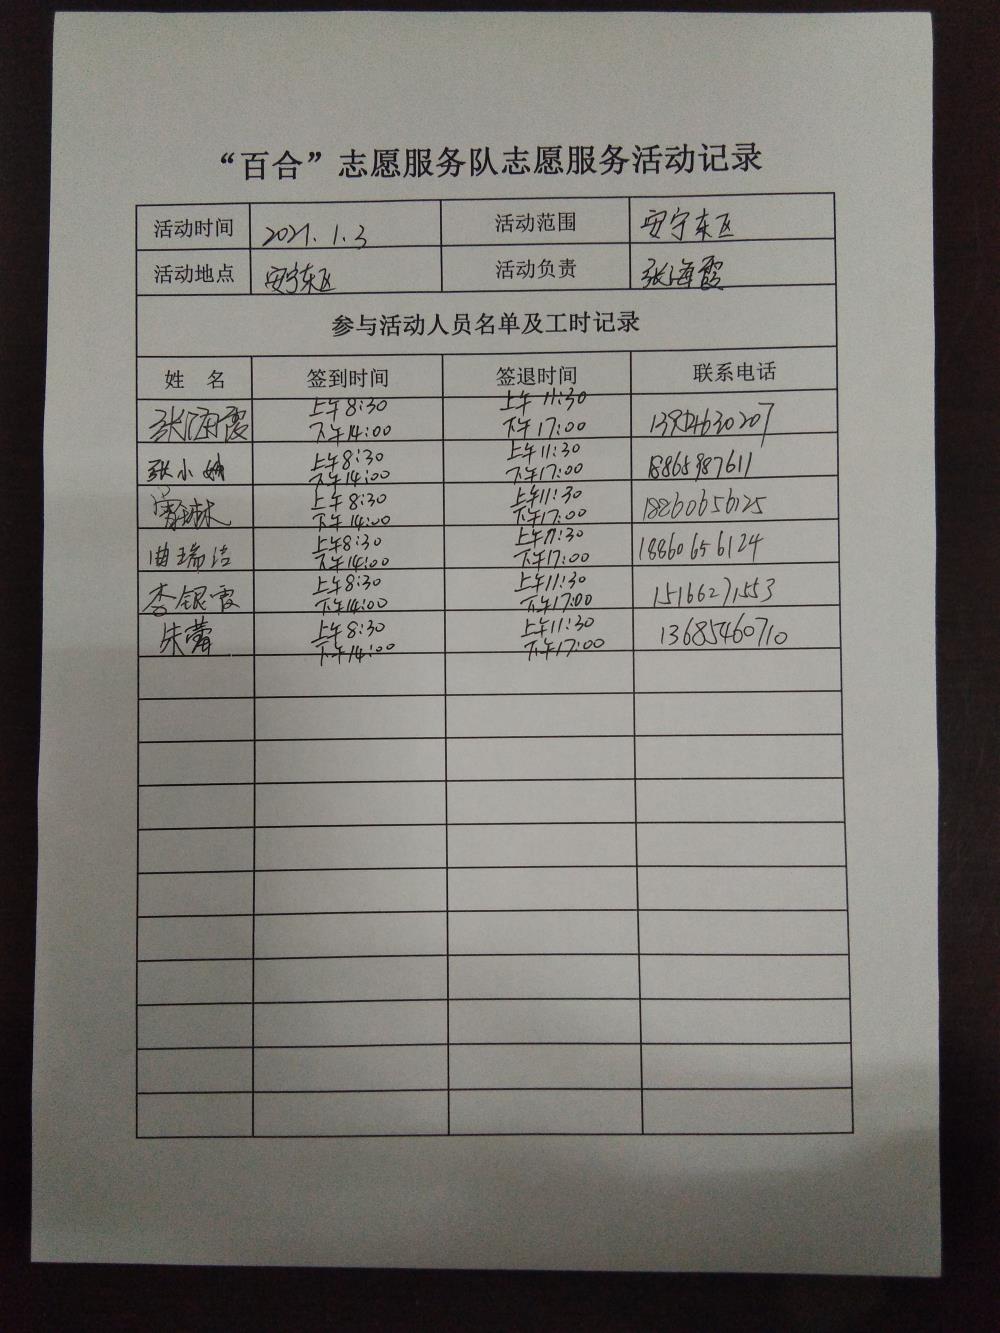 “百合”志愿服务队志愿服务活动记录
活动时间 2021.1.3 活动范围 安宁东区
活动地点 安宁东区 活动负责 张海霞
参与活动人员名单及工时记录
姓 名 签到时间 签退时间 联系电话
张海霞 上午8:30 上午11:30
下午14:00 下午17:00
张小 上午8:30 上午11:30 18865987611
下午14:00 下午17:00
上午8:30 上午11:30 18860656125
下午14:00 下午17:00
曲瑞洁 上午8:30 上午11:30 18860656124
下午14:00 下午17:00
李银霞 上午8:30 上午11:30 15166271553
下午14:00 下午17:00
朱蕾 上午8:30 上午11:30 13685460710
下午14:00 下午17:00